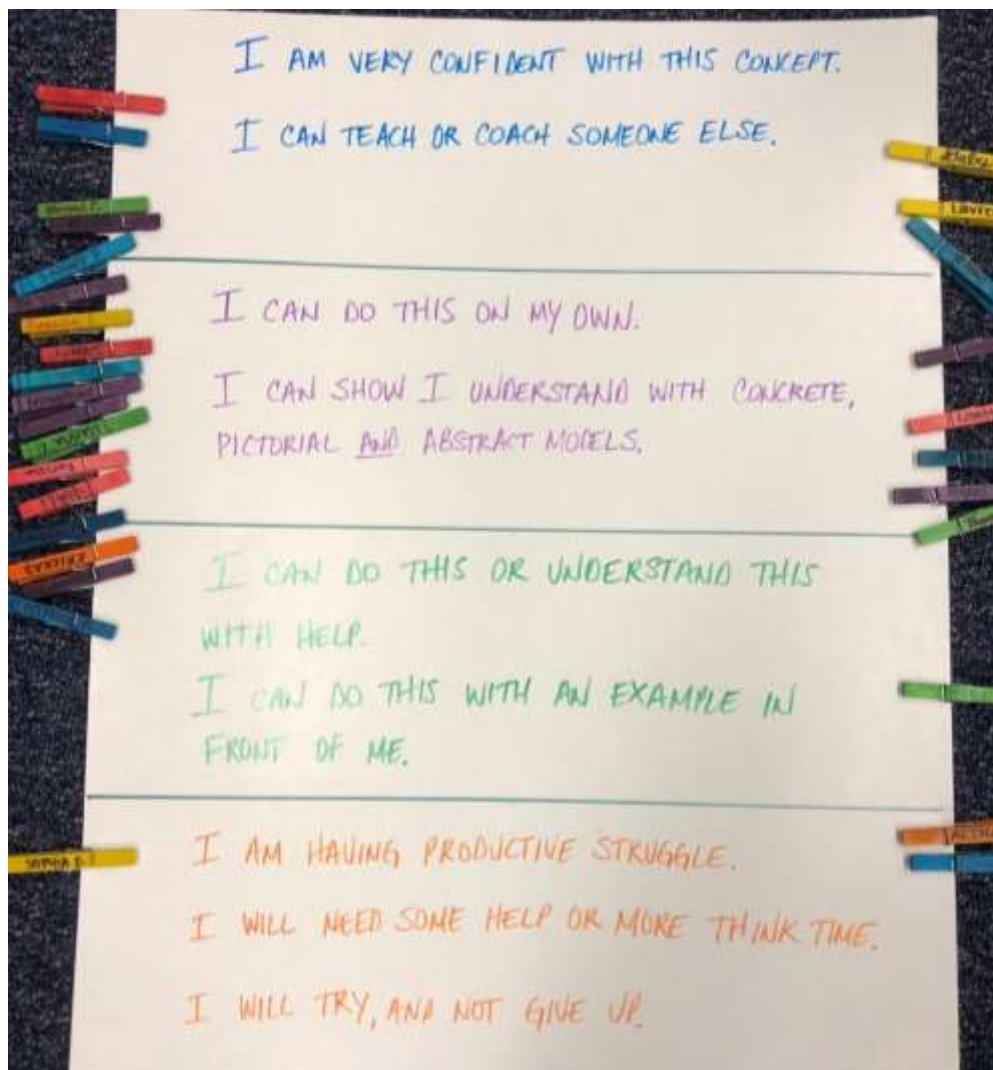 I AM VERY CONFIDENT WITH THIS CONCEPT.
I CAN TEACH OR COACH SOMEONE ELSE.
I CAN DO THIS ON MY OWN.
I CAN SHOW I UNDERSTAND WITH CONCRETE,
PICTORIAL AND ABSTRACT MODELS.
I CAN DO THIS OR UNDERSTAND THIS
WITH HELP.
I CAN DO THIS WITH AN EXAMPLE IN
FRONT OF ME.
SOPHIA D.
I AM HAVING PRODUCTIVE STRUGGLE.
I WILL NEED SOME HELP OR MORE THINK TIME.
I WILL TRY, AND NOT GIVE UP.